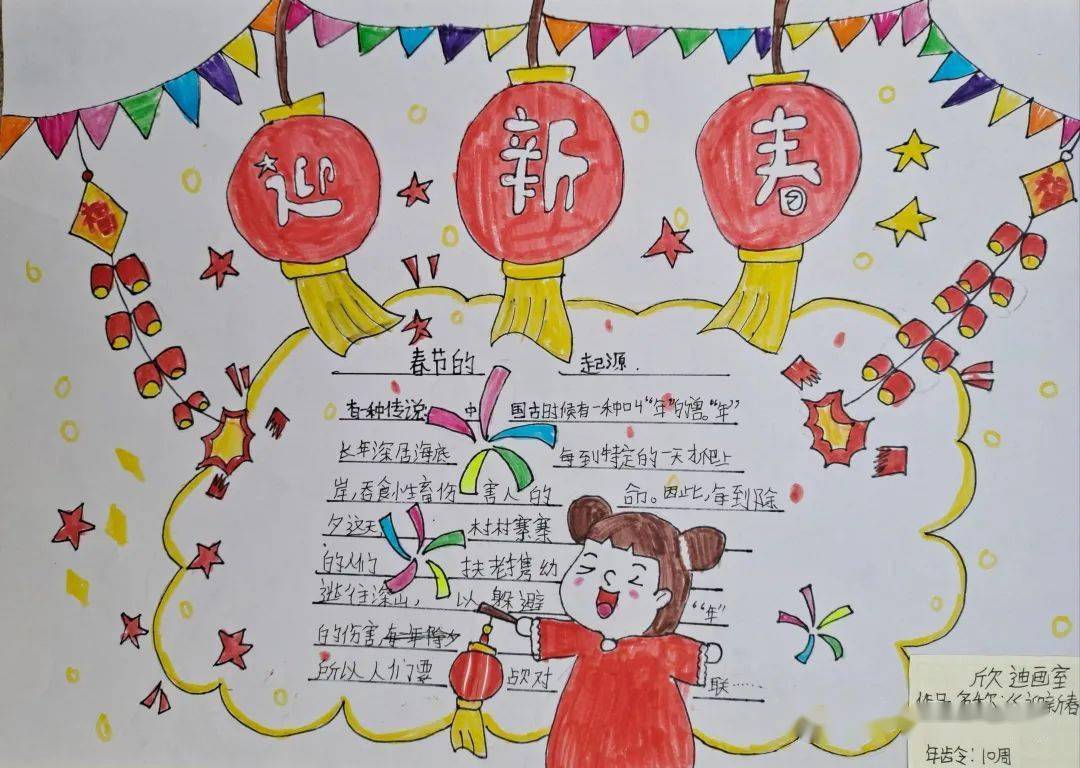 迎新春
福
福
春节的起源.
有一种传说,中国古时候有一种叫“年”的兽。“年”
长年深居海底每到特定的一天才爬上
岸,吞食牲畜伤害人的命。因此,每到除
夕这天村村寨寨
的人们扶老携幼
逃往深山,以躲避“年”
的伤害,每年除夕
所以人们要贴对联……
欣迪画室
作品名称:《迎新春
年龄:10周